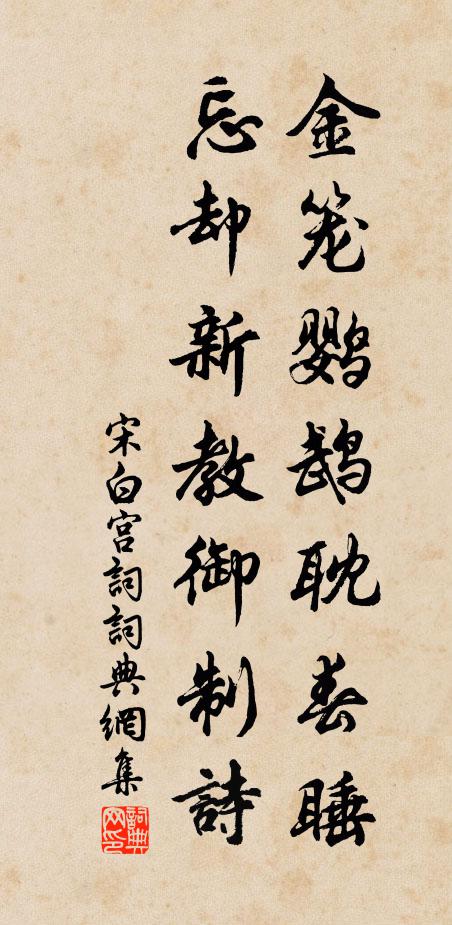 金笼鹦鹉耽春睡
忘却新教御制詩
宋白宫詞詞典網集
詞典网印